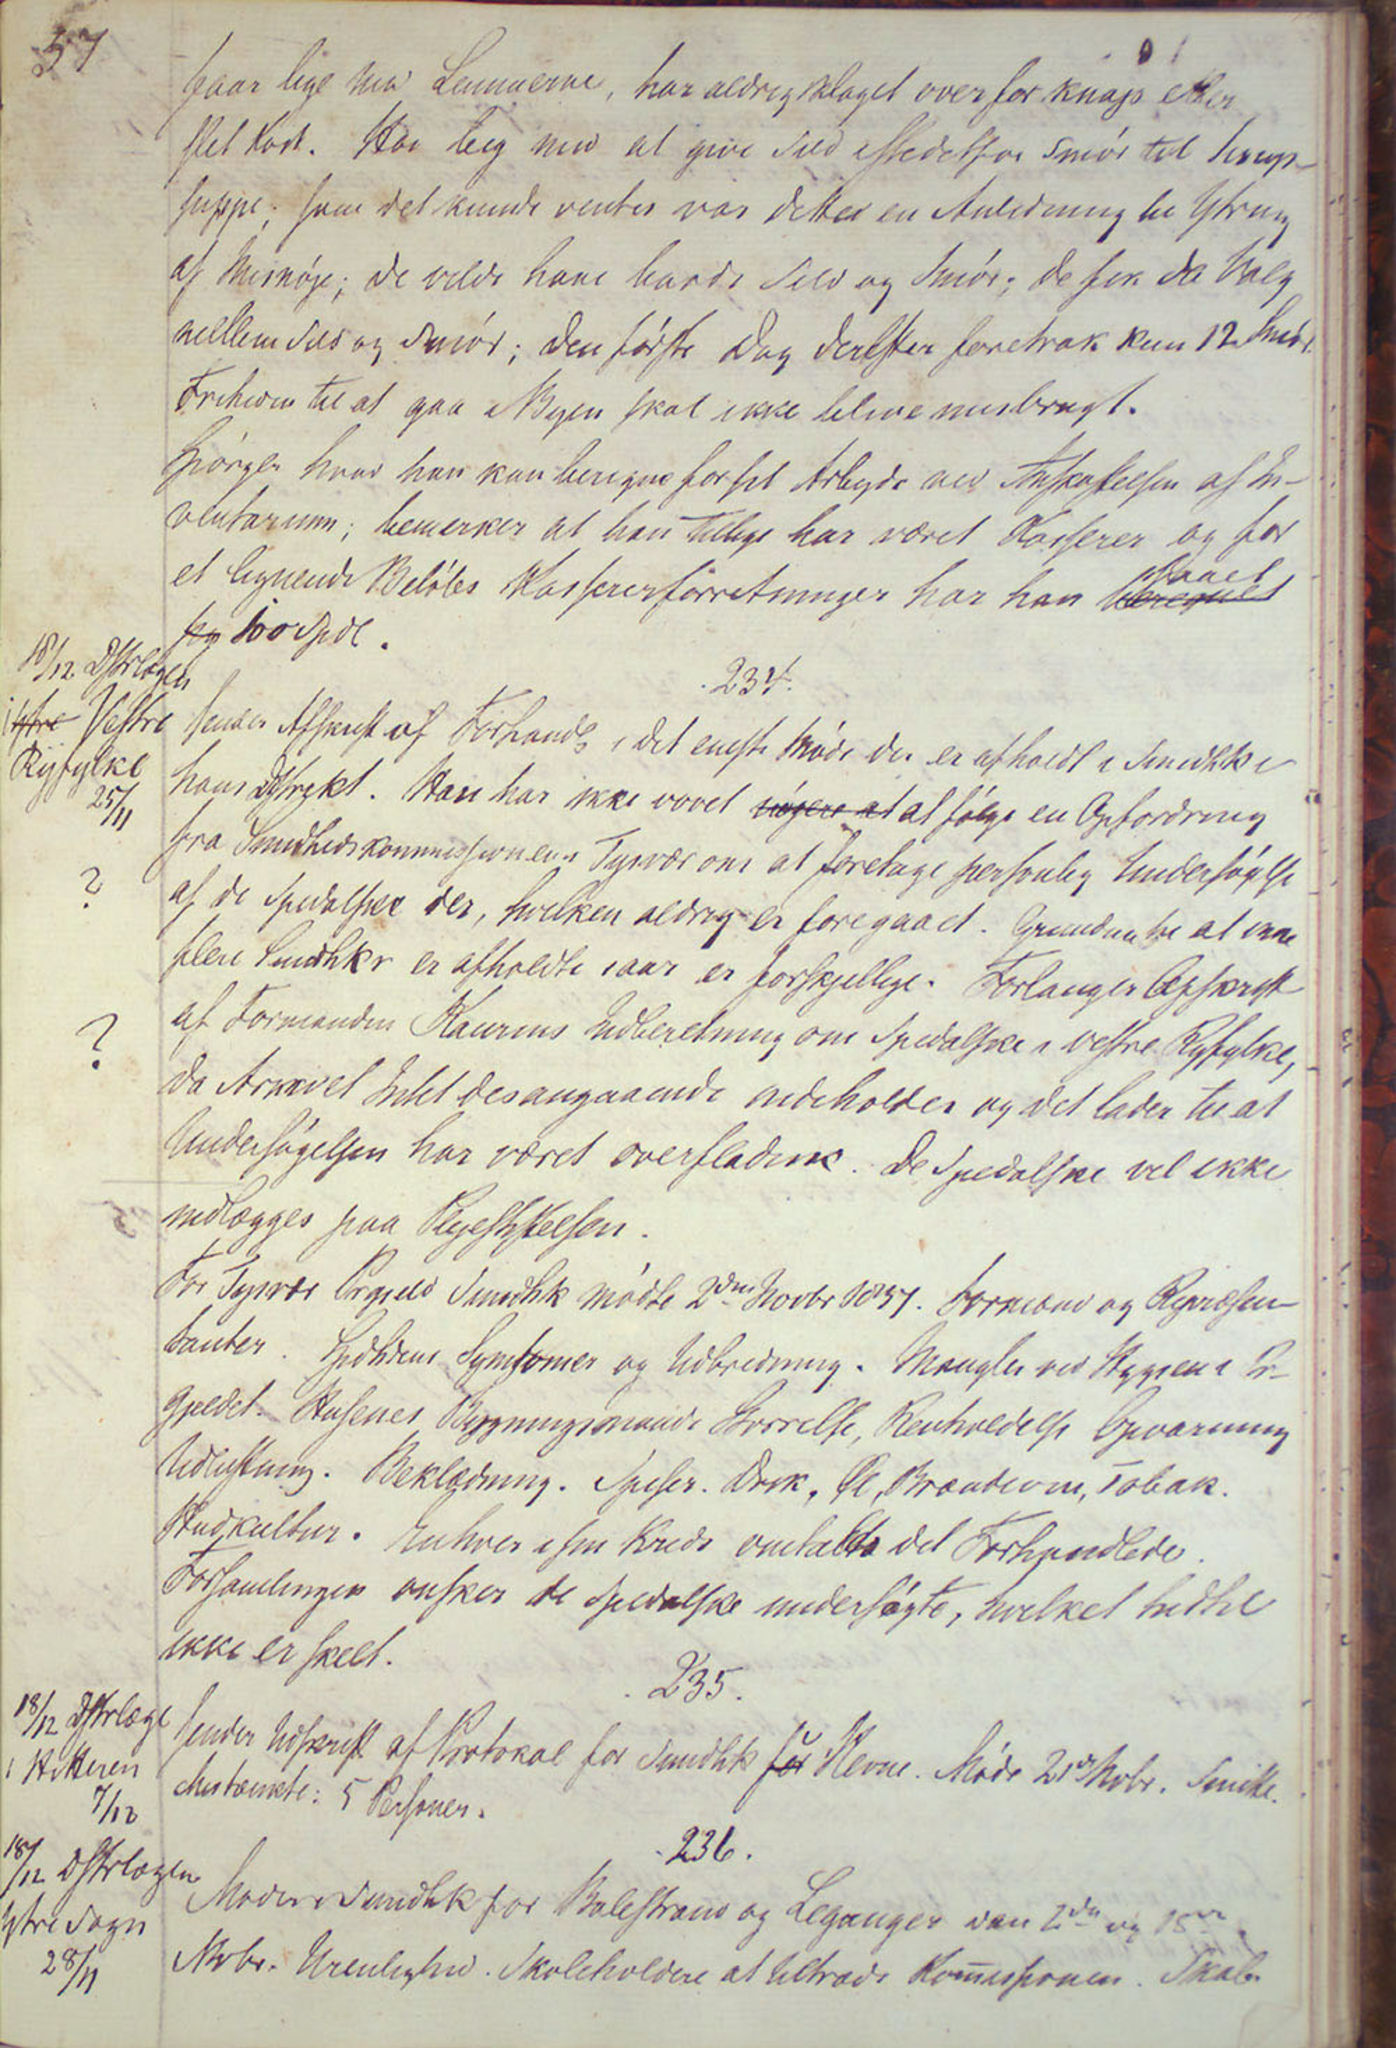 57
faar lige med Lemmerne, har aldrig klaget over for knap eller
slet Kost. Han beg med at give Sild istedetfor Smör til Sirup-
suppe; som det kunde ventes var dette en Anledning til Ytring
af Misnöje; de vilde have baade Sild og Smör; de fik da Valg
mellem Sild og Smör; den förste Dag derefter foretrak kun 12 Smör.
Friheden til at gaa i Byen skal ikke blive misbrugt.
Spörger hvad han kan beregne for sit Arbeide ved Anskaffelsen af In-
ventarium; bemerker at han tillige har været Kasserer og for
et lignende Belöbs Kassererforretninger har han beregnet faaet
sig 100 Spdl.
234.
18/12 Dstrlægen
i ytre Vestre
Ryfylke
25/11
Sender Afskrift af Forhandl. i det eneste Möde der er afholdt i Sundhk i
hans Dstrikt. Han har ikke vovet at fölge en Opfordring
fra Sundhedskommissionen i Tysvær om at foretage personlig Undersögelse
?
af de Spedalske der, hvilken aldrig er foregaaet. Grundene til at ikke
flere Sundhkr er afholdte iaar er forskjellige. Forlanger Afskrift
?
af Formanden Kaurins Indberetning om Spedalske i vestre Ryfylke,
da Arkivet Intet desangaaende indeholder og det lader til at
Undersögelsen har været overfladisk. De Spedalske vil ikke
indlægges paa Pleiestiftelsen.
For Tysvær Prgjeld Sundhk mödte 2den Novbr 1857. Formænd og Repræsen-
tanter. Spedskens Symtomer og Udbredning. Mangler ved Hygien i Pr-
gjeldet. Husenes Bygningsmaade Störrelse, Renholdelse Opvarmning
Udluftning. Beklædning. Spiser. Drik, Öl, Brændevin, Tobak.
Hudkultur. Enhver i sin Kreds omtalte det Forhandlede.
Forsamlingen önsker de Spedalske undersögte, hvilket hidtil
ikke er skeet.
235.
18/12 Dstrlæge
i Hitteren
7/12
Sender Udskrift af Protokol for Sundhk for Hevne. Möde 21de Novbr.
Mistænkte: 5 Personer.
236.
18/12 Dstrlægen
Ytre Sogn
28/11
Möder i Sundhk for Balestrand og Leganger den 2den og 15de
Novbr. Urenlighed. Skoleholdere at tiltræde Kommissionen. Skab.